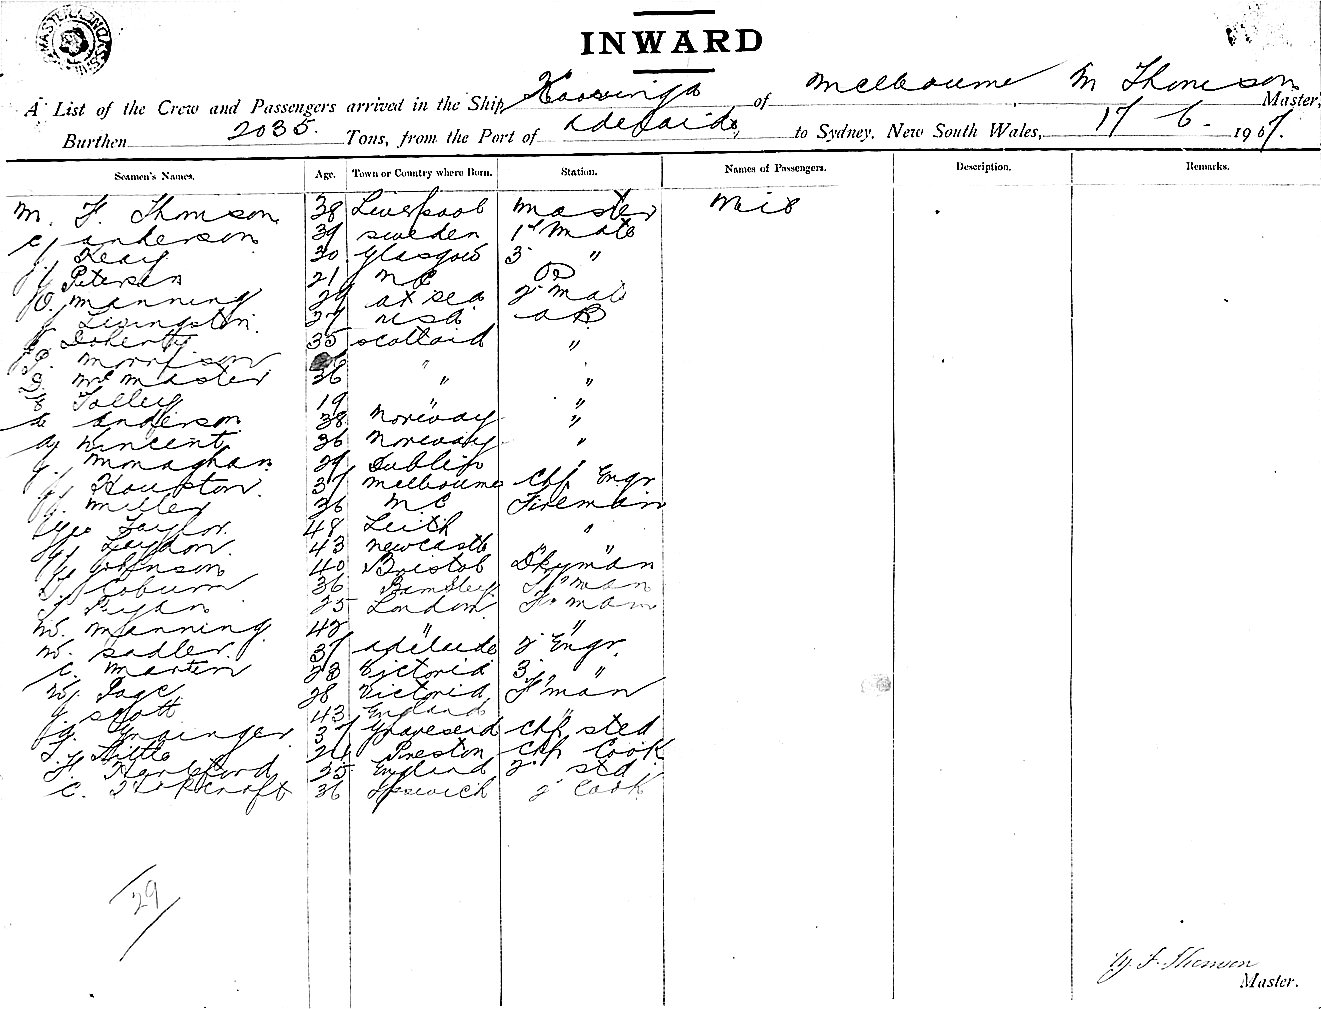 INWARD
A List of the Crew and Passengers arrived in the Ship Koovinga of Melbourne M Thomson Master,
Burthen 2035. Tons, from the Port of Adelaide, to Sydney, New South Wales, 17 6- 1907.
Seamen's Names. Age. Town or Country where Born. Station. Names of Passengers. Description. Remarks.
M. F. Thomson 38 Liverpool Master Nil
C. Anderson 39 Sweden 1st Mate
J. Keay 30 Glasgow 3 "
Petersen 21
O. Manning 29 at sea 2 Mate
J. Livingston. 27 AB
Doherty 35 Scotland "
P. Morrison 36 "
D. McMaster 36 " "
Tolley 19 " "
A. Anderson 38 Norway "
Vincent 36 Norway "
J. Monaghan 29 Dublin
Houston. 37 Melbourne Chf Engr
J. Miller 36 Fireman
Geo Taylor. 48 Leith "
Leydon. 43 Newcastle " "
Johnson 40 Bristol Dkyman
D. Coburn 36 Barnsley F'man
T. Ryan 25 London F'man
W. Manning 42 " "
W. Sadler. 37 Adelaide 2 Engr.
C. Martin 23 Victoria 3 "
W. Page 28 Victoria F'man
J. Scott 43 England "
G. Grainger 37 Gravesend Chf Sted
T. Little 26 Preston Chf Cook
H. Hereford 25 England 2 Std
C. 36 Ipswich 2 Cook
29
M. F. Thomson
Master.